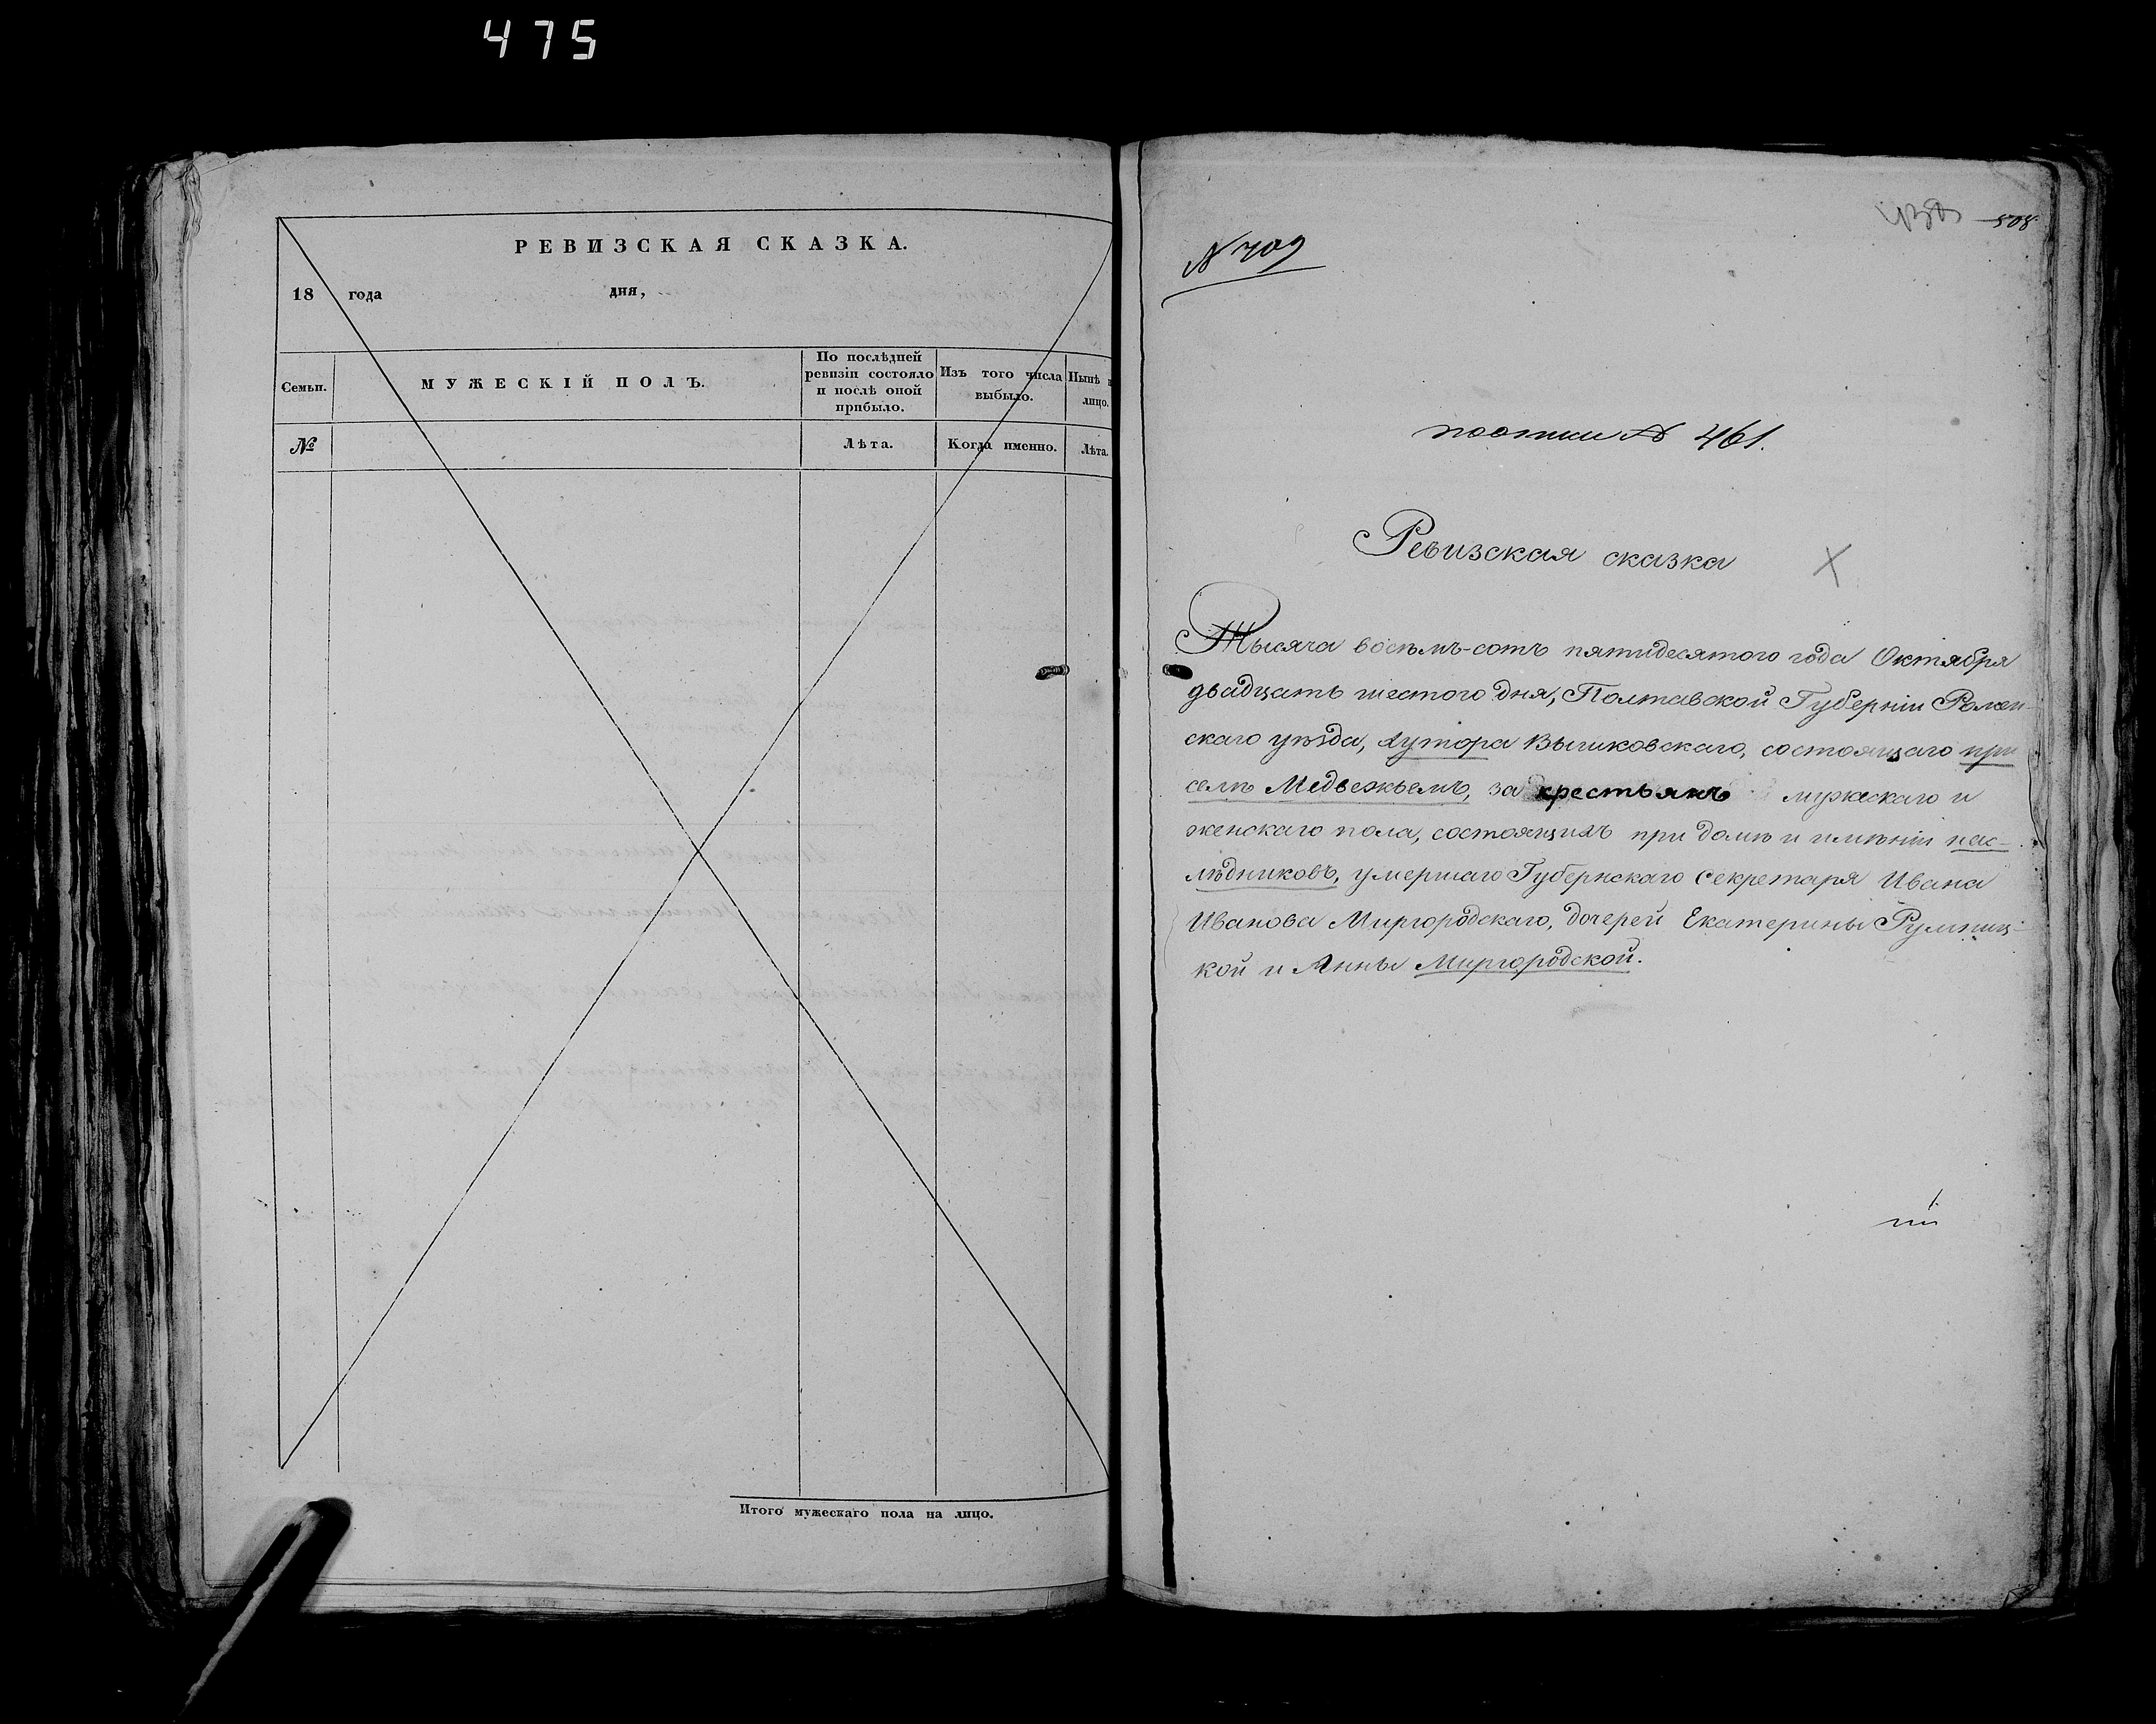 475
РЕВИЗСКАЯ СКАЗКА.
18 года дня,
Семьи.
МУЖЕСКІЙ ПОЛЪ.
По послѣдней
ревизіи состояло
и послѣ оной
прибыло.
Изъ того числа
выбыло.
Нынѣ
лицо.
№
Лѣта.
Когда именно.
Лѣта.
Итого мужескаго пола на лицо.
508
N 709
почти N 461.
Ревизская сказка
Тысяча восемъ-сотъ пятидесятого года Октября
двадцать шестого дня, Полтавской Губерніи Ромен-
скаго уѣзда, хутора Вычиковскаго, состоящаго при
селѣ Медвежьемъ, за крестьянъ мужескаго и
женскаго пола, состоящихъ при домѣ и имѣніи нас-
лѣдниковъ, умершаго Губернскаго Секретаря Ивана
Иванова Миргородскаго, дочерей Екатерины Румниц-
кой и Анны Миргородской.